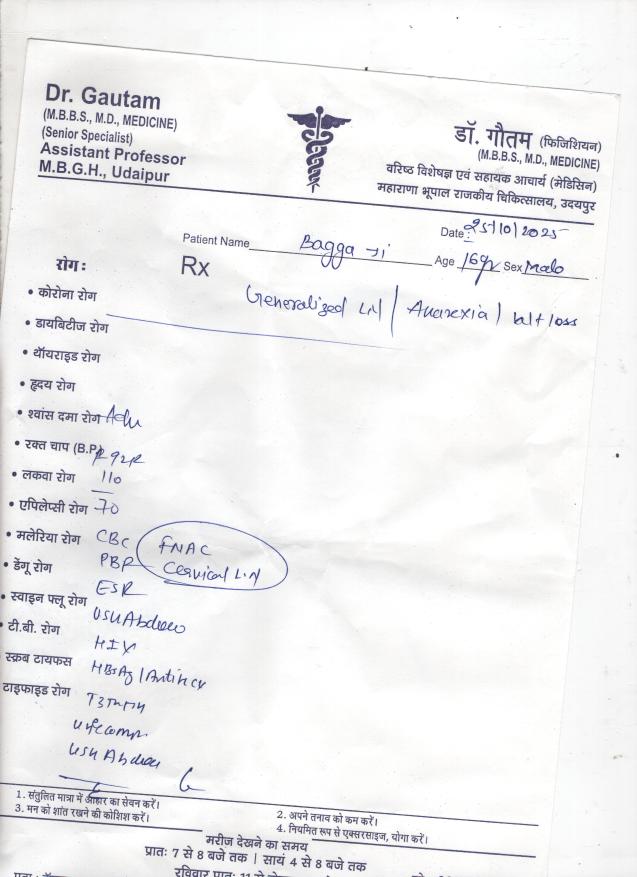 Dr. Gautam
(M.B.B.S., M.D., MEDICINE)
(Senior Specialist)
Assistant Professor
M.B.G.H., Udaipur
डॉ. गौतम (फिजिशियन)
(M.B.B.S., M.D., MEDICINE)
वरिष्ठ विशेषज्ञ एवं सहायक आचार्य (मेडिसिन)
महाराणा भूपाल राजकीय चिकित्सालय, उदयपुर
Date: 25/10/2025
Patient Name Bagga Ji Age 16yr Sex Male
रोग : Rx
Generalized LN / Anorexia / wt loss
• कोरोना रोग
• डायबिटीज रोग
• थॉयराइड रोग
• हृदय रोग
• श्वांस दमा रोग Adv
• रक्त चाप (B.P)
• लकवा रोग 110
• एपिलेप्सी रोग 70
• मलेरिया रोग CBC FNAC
• डेंगू रोग PBF Cervical LN
• स्वाइन फ्लू रोग ESR
• टी.बी. रोग USG Abdomen
HIV
स्क्रब टायफस HBsAg / Anti HCV
टाइफाइड रोग T3T4TSH
USG Abdomen
1. संतुलित मात्रा में आहार का सेवन करें।
2. अपने तनाव को कम करें।
3. मन को शांत रखने की कोशिश करें।
4. नियमित रूप से एक्सरसाइज, योगा करें।
मरीज देखने का समय
प्रातः 7 से 8 बजे तक | सायं 4 से 8 बजे तक
रविवार प्रातः 11 से